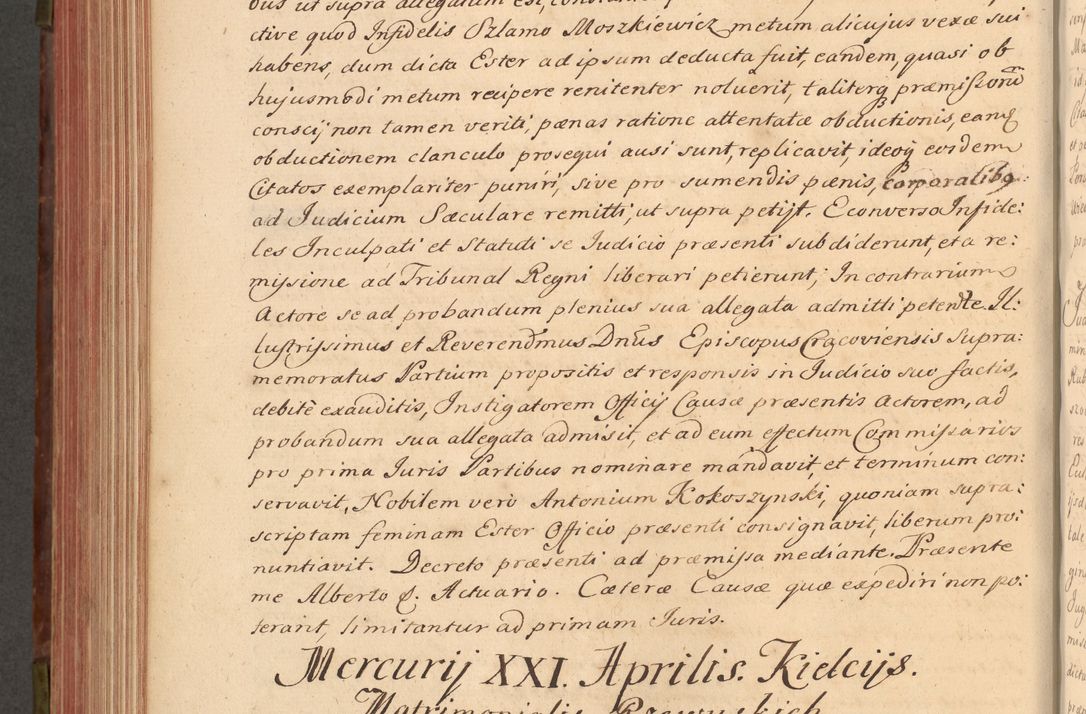 bus ut supra allegatum est,
ctive quod Infidelis Szlamo Moszkiewicz metum alicujus vexæ sui
habens, dum dicta Ester ad ipsum deducta fuit, eandem, quasi ob
hujusmodi metum recipere renitenter noluerit, taliterq præmissorū
conscij non tamen veriti, pænas ratione attentatæ obductionis, eanq
obductionem clanculo prosequi ausi sunt, replicavit, ideoq eosdem
Citatos exemplariter puniri, sive pro sumendis pænis, corporalibq
ad Judicium Sæculare remitti, ut supra petijt. Econverso Infide:
les Inculpati et Statuti se Judicio præsenti subdiderunt, et a re:
missione ad Tribunal Regni liberari petierunt; In contrarium
Actore se ad probandum plenius sua allegata admitti petente. Il:
lustrissimus et Reverendmus Dnus Episcopus Cracoviensis supra:
memoratus Partium propositis et responsis in Judicio suo factis,
debitè exauditis, Instigatorem Officij Causæ præsentis Actorem, ad
probandum sua allegata admisit, et ad eum effectum Commissarios
pro prima Juris Partibus nominare mandavit, et terminum con:
servavit, Nobilem verò Antonium Kokoszynski, quoniam supra:
scriptam feminam Ester Officio præsenti consignavit, liberum pro:
nuntiavit. Decreto præsenti ad præmissa mediante. Præsente
me Alberto q. Actuario. Cæteræ Causæ quæ expediri non po:
terant, limitantur ad primam Juris.
Mercurij XXI. Aprilis. Kielcijs.
Matrimonialis